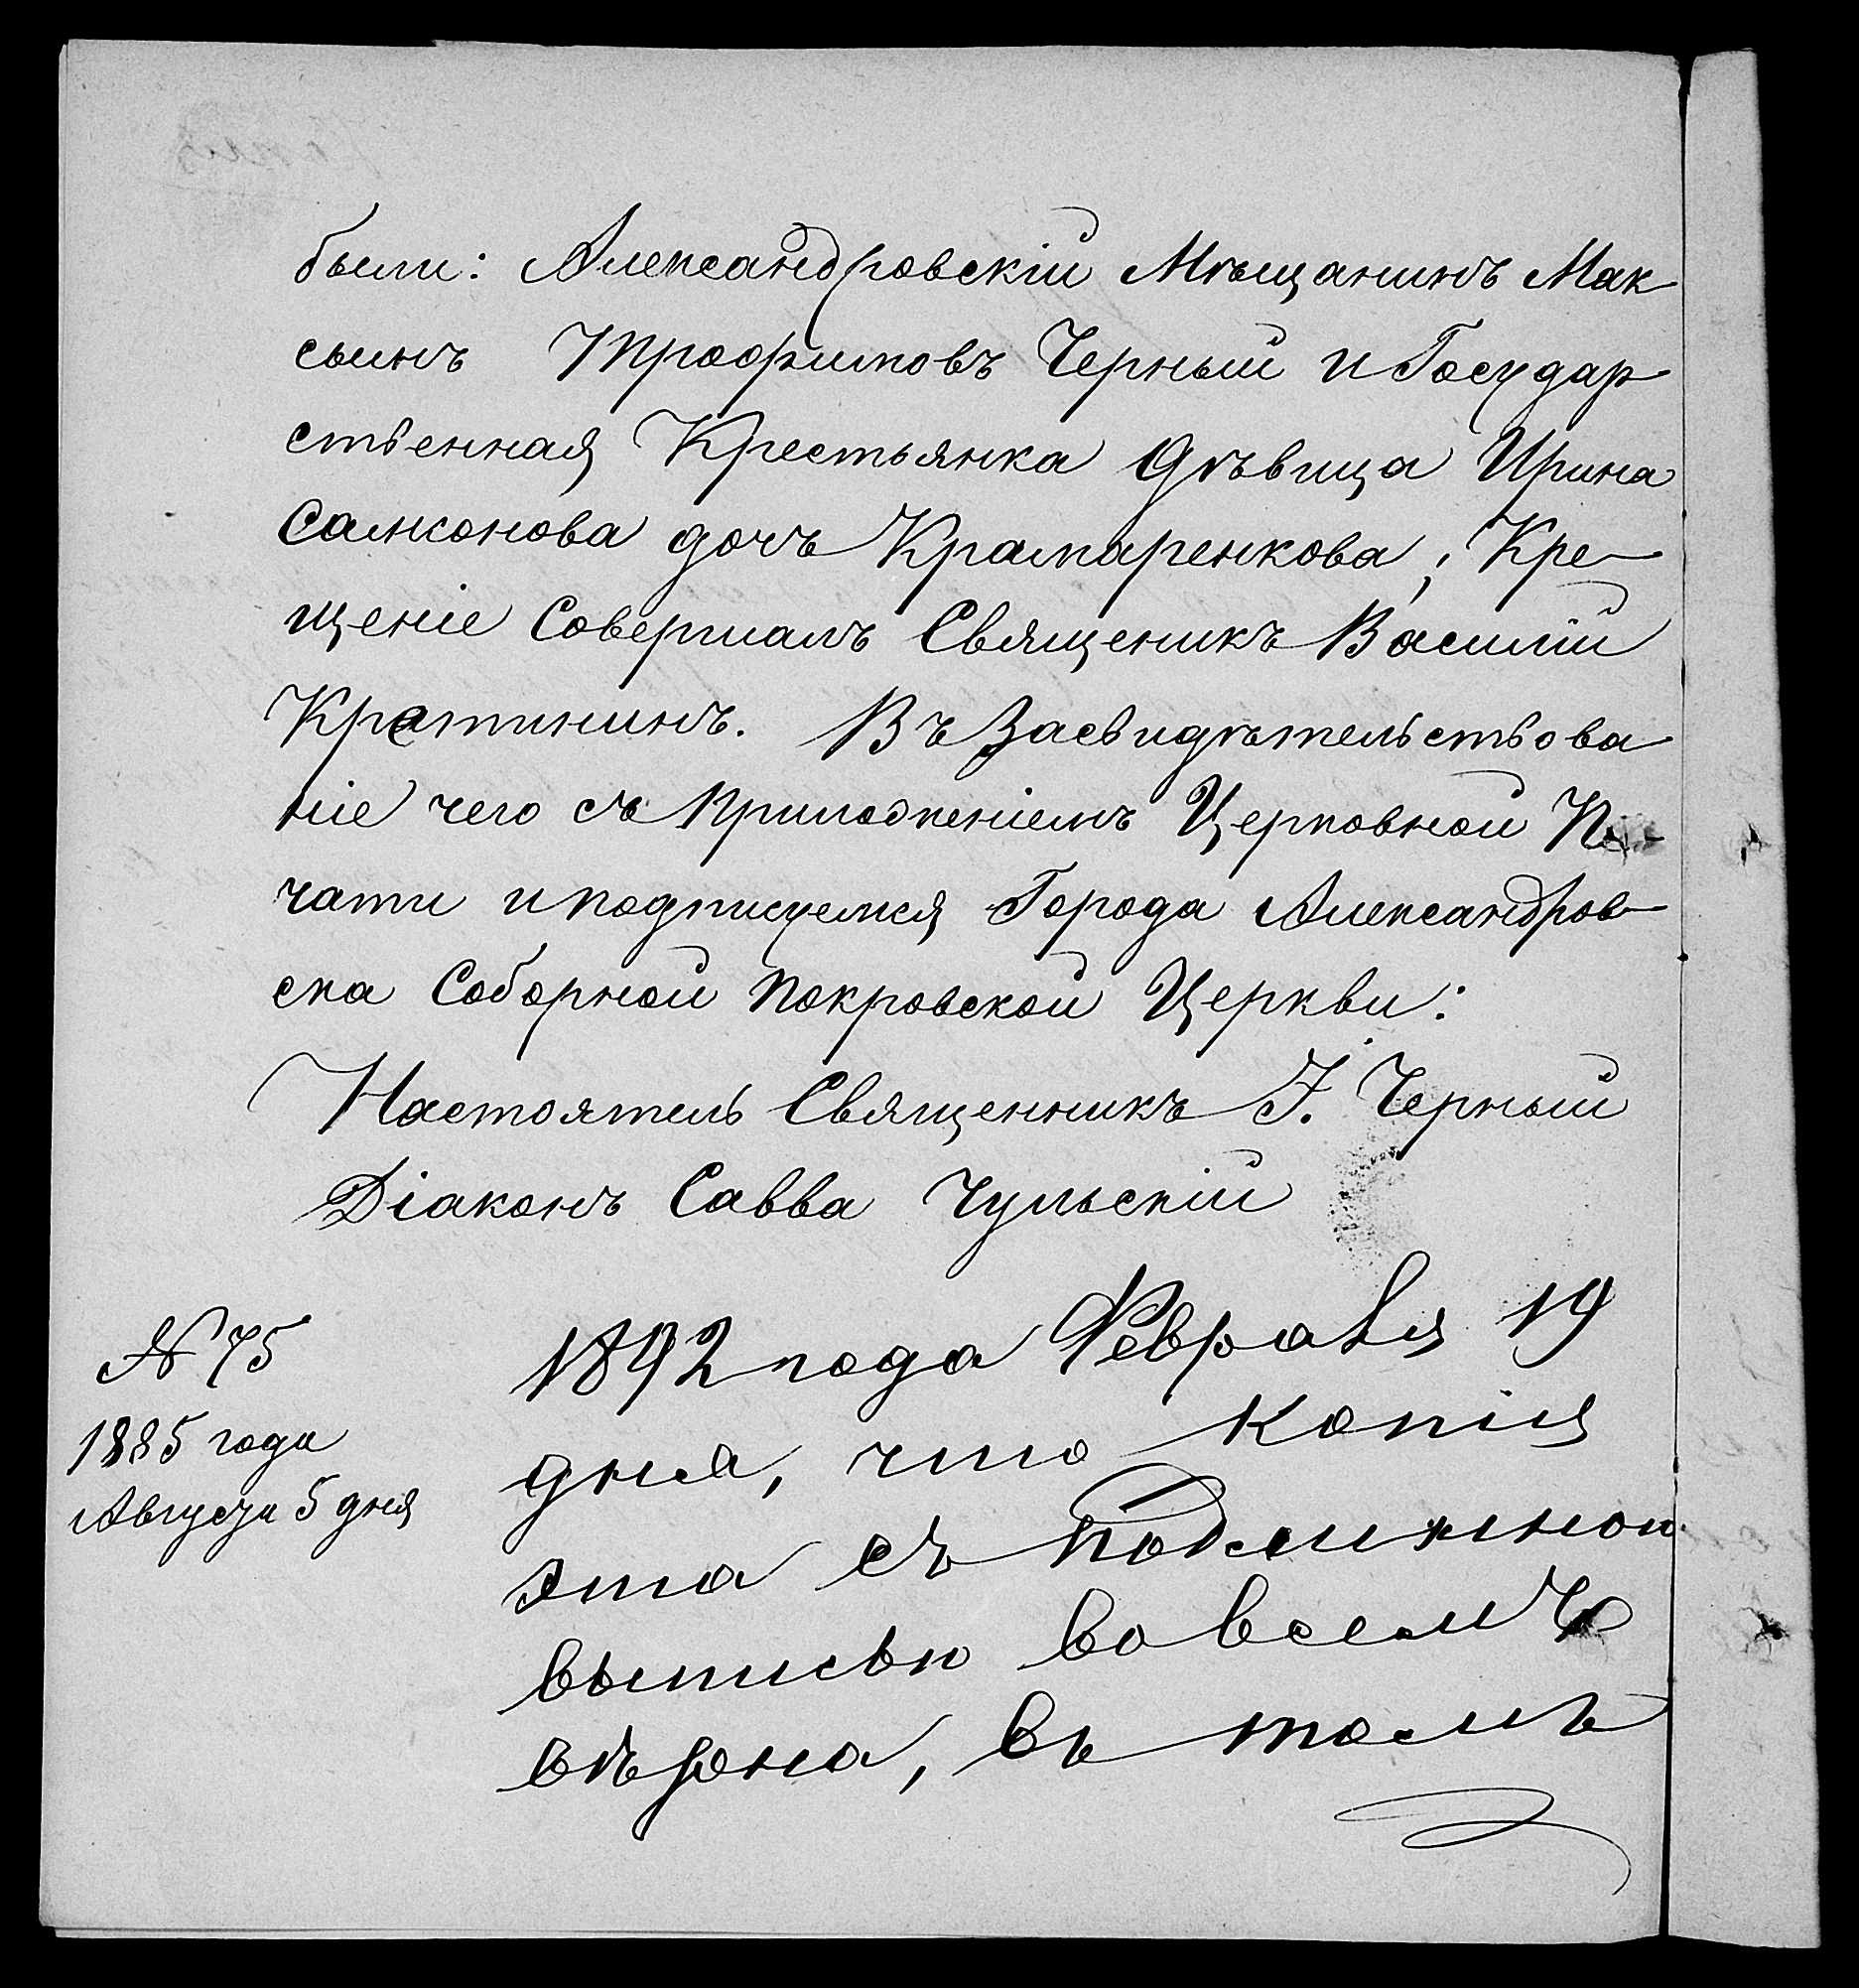 были: Александровскій Мѣщанинъ Мак
симъ Трофимовъ Черный и Государ
ственная Крестьянка дѣвица Ирина
Самсонова дочь Крамаренкова; Кре-
щеніе Совершалъ Священикъ Василій
Кратининъ. Въ Засвидѣтельствова
ніе чего съ приложеніемъ Церковной Пе-
чати и подписуемся Города Александров-
ска Соборной Покровской Церкви:
Настоятель Священникъ І. Черный
Діаконъ Савва Чульскій
№ 75
1885 года
Августа 5 дня
1892 года Февраля 19
дня, что копія
эта съ подлинною
выписью во всемъ
вѣрна, въ томъ